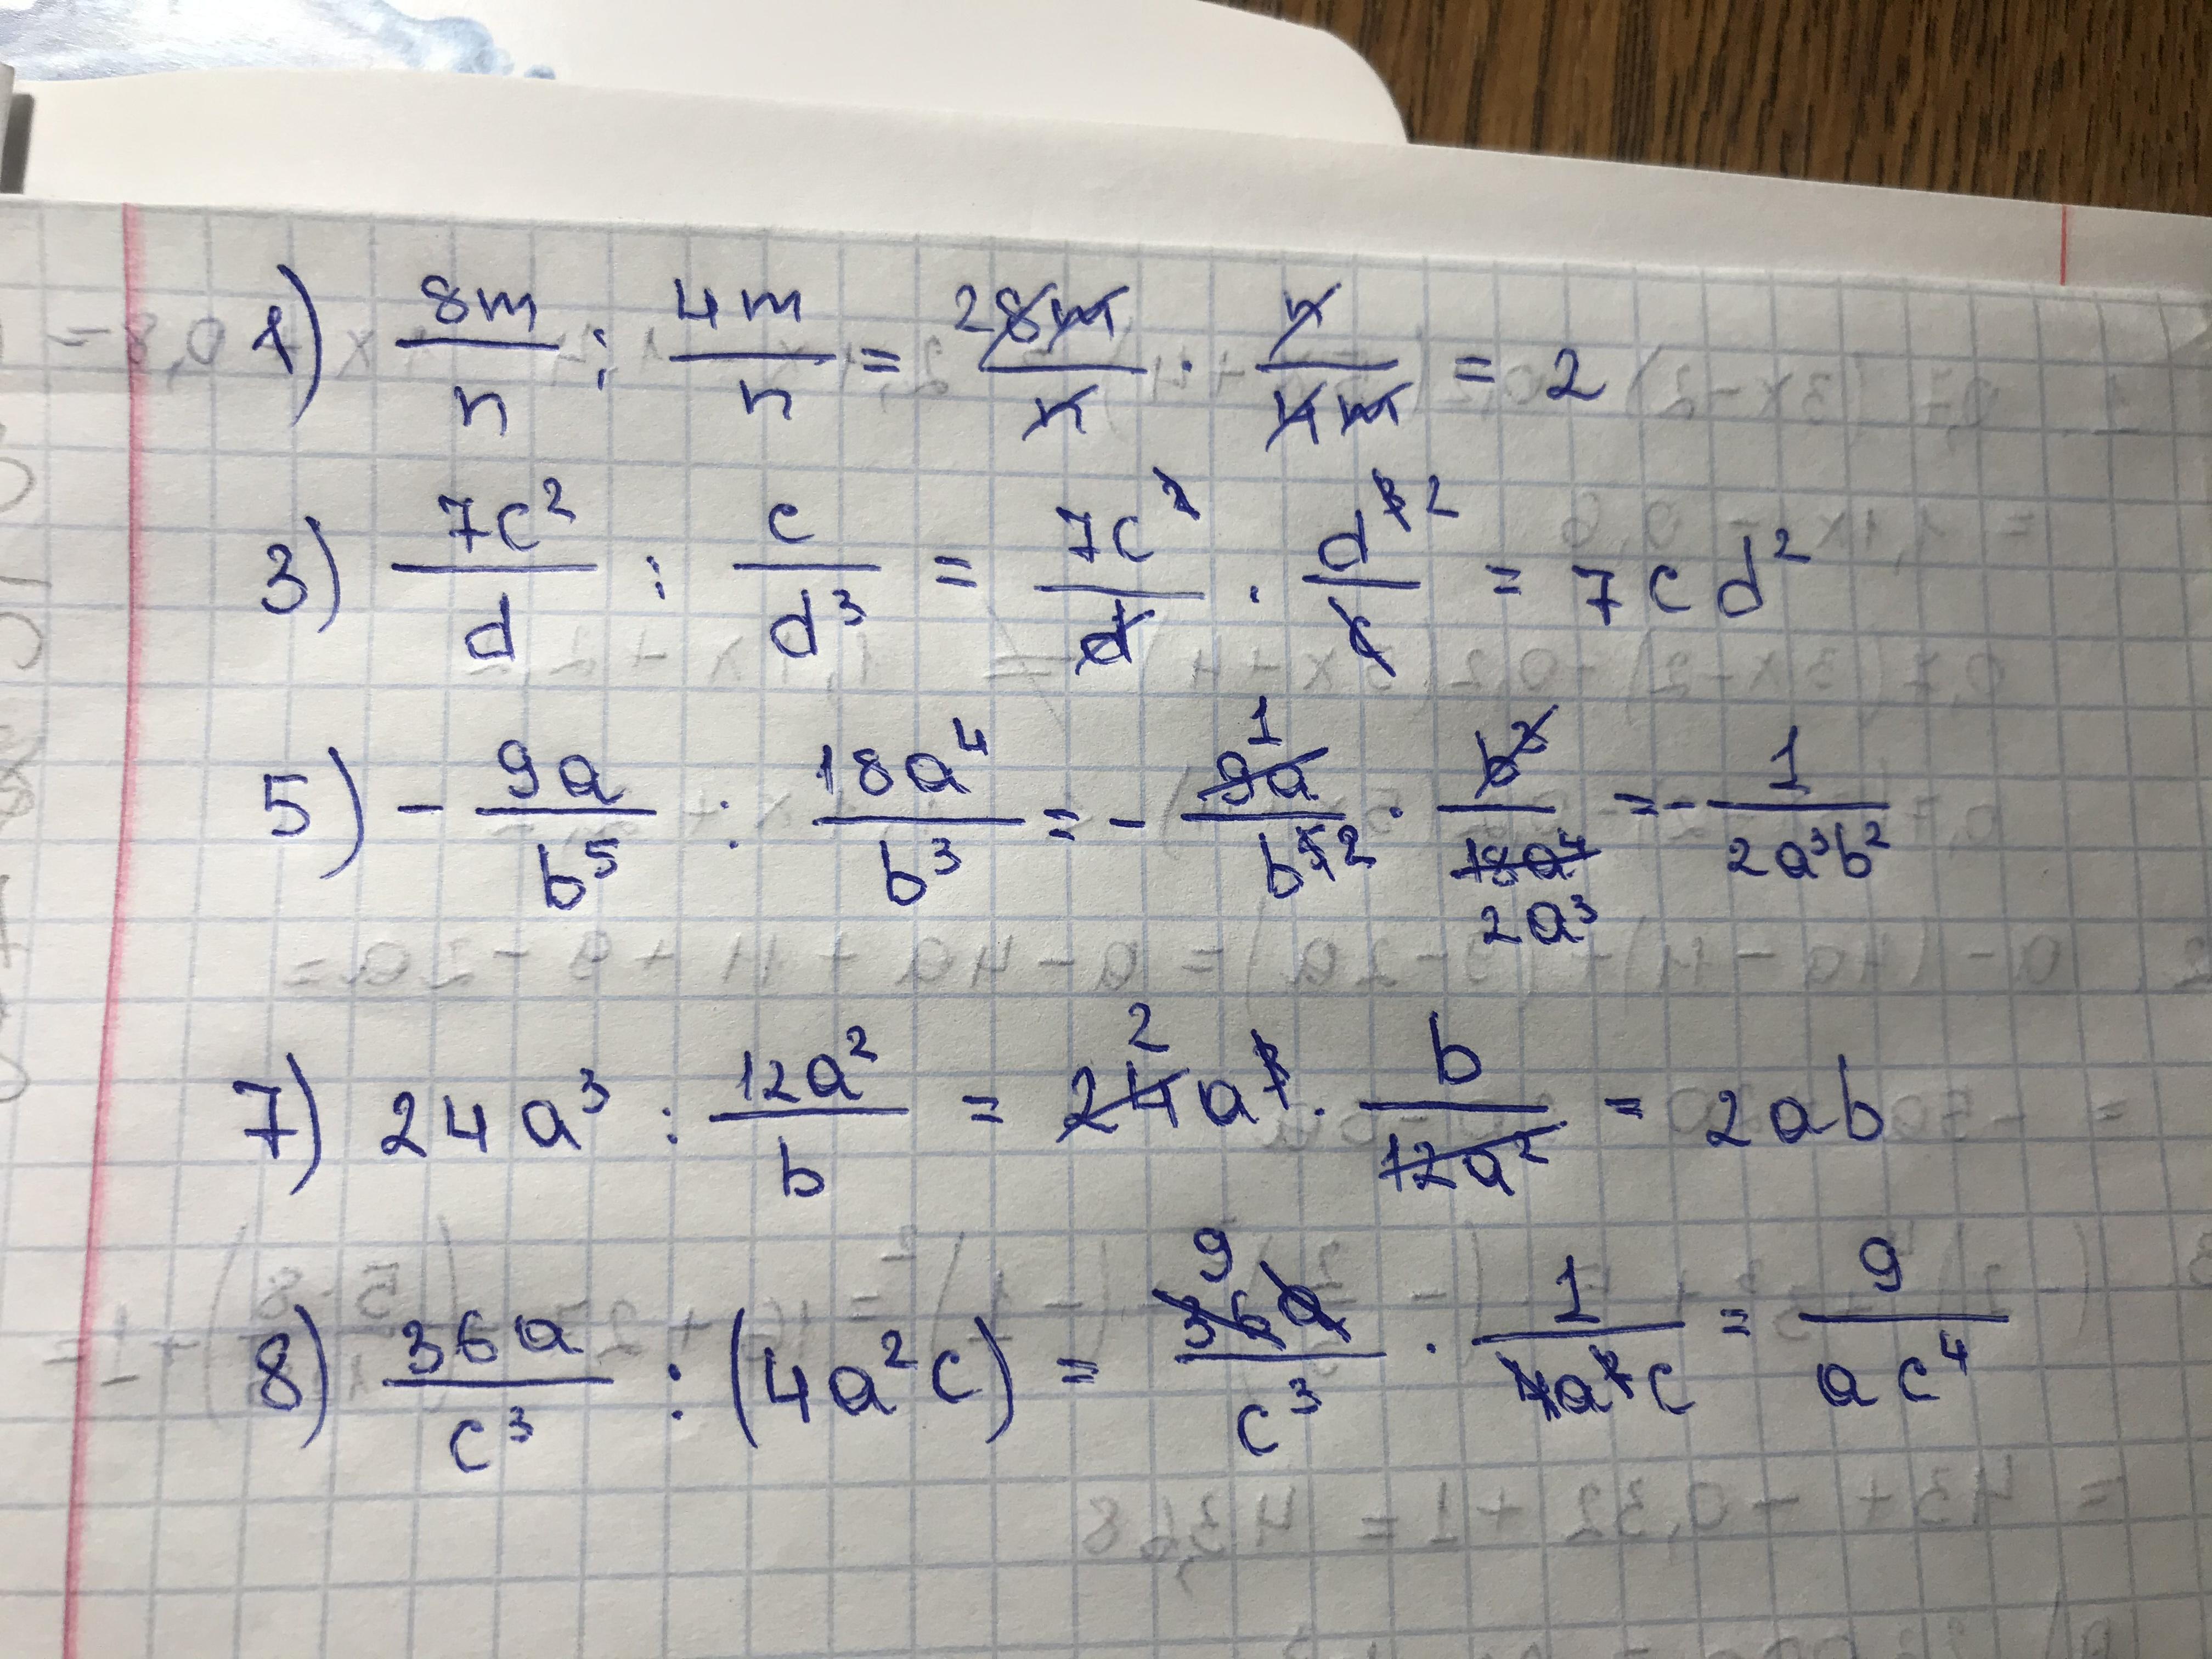 1) 8m/n : 4m/n = 2 8m/n · n/4m = 2
3) 7c²/d : c/d³ = 7c²/d · d³ 2/c = 7cd²
5) - 9a/b⁵ : 18a⁴/b³ = - 1 9a/b⁵ 2 · b³/18a⁴ 2a³ = - 1/2a³b²
7) 24a³ : 12a²/b = 2 24a³ · b/12a² = 2ab
8) 36a/c³ : (4a²c) = 9 36a/c³ · 1/4a²c = 9/ac⁴